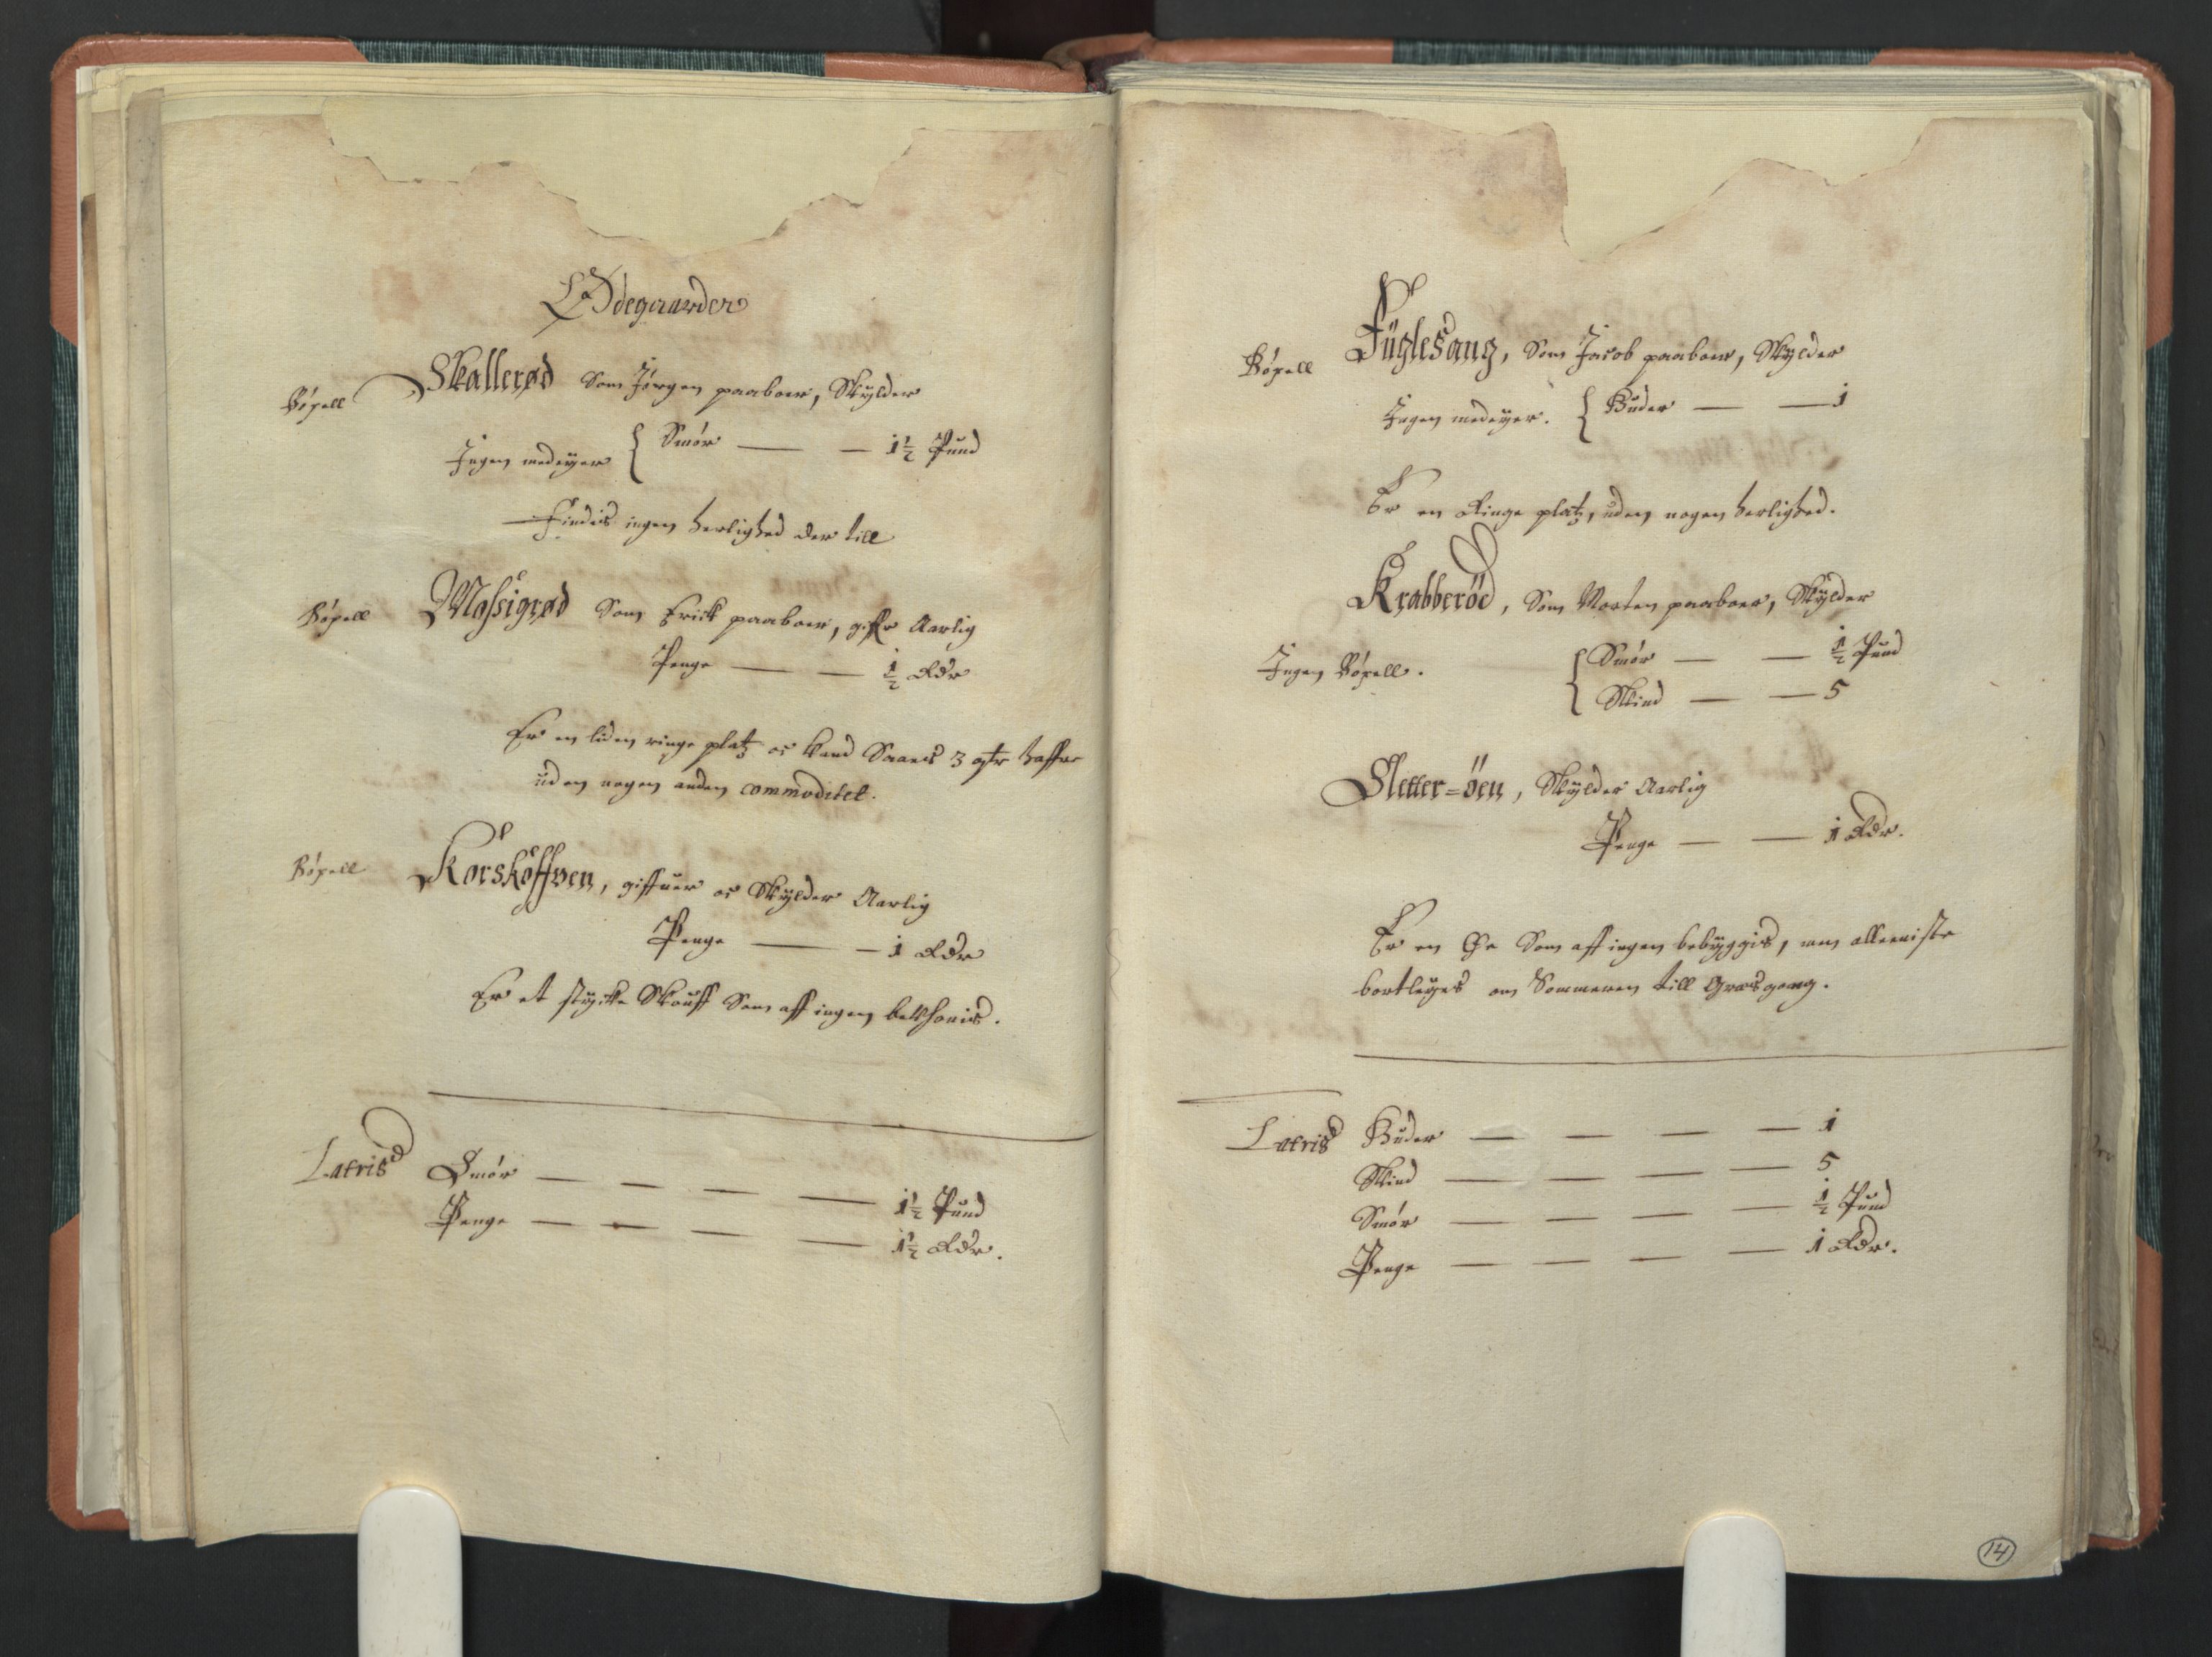 Ødegaarder
Bøxell Skallerød Som Jørgen paaboer, Skylder
Ingen medeyer { Smør — — 1½ Pund
Findis ingen herlighed der till
Bøxell Mossigrød Som Erick paaboer, giffr Aarlig
Penge — — ½ Rdr
Er en liden ringe platz oc kand Saaes 3 qtr haffre
uden nogen anden commoditet.
Bøxell Korskoffven, giffuer oc Skylder Aarlig
Penge — — 1 Rdr
Er et stycke Skouff Som aff ingen besides.
Lateris Smør — — — — 1½ Pund
Penge — — — — 1½ Rdr.
Bøxell Fuglesang, Som Jacob paaboer, Skylder
Ingen medeyer. { Huder — — 1
Er en Ringe platz, uden nogen herlighed.
Krabberöd, Som Morten paaboer, Skylder
Ingen Bøxell. { Smør — — ½ Pund
Skind — — 5
Sletter=öen, Skylder Aarlig
Penge — — 1 Rdr.
Er en Øe Som aff ingen bebyggis, men alleeniste
bortleyes om Sommeren till Græsgang.
Lateris Huder — — — — 1
Skind — — — — 5
Smør — — — — ½ Pund
Penge — — — — 1 Rdr.
14